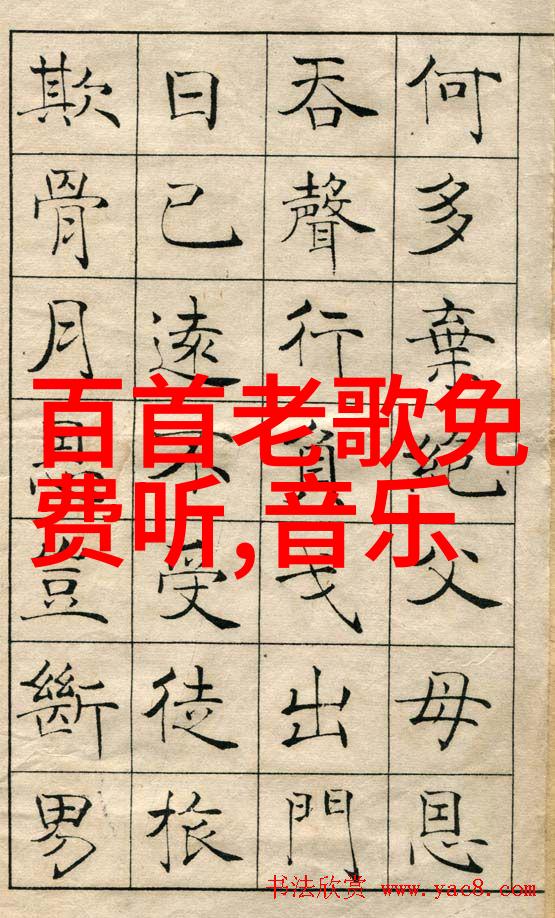 何多棄絕父母恩
吞聲行負戈出門
日已遠不受徒旅
欺骨月豈斷男
百首老歌免
费听,音乐
书法欣赏 www.yac8.com